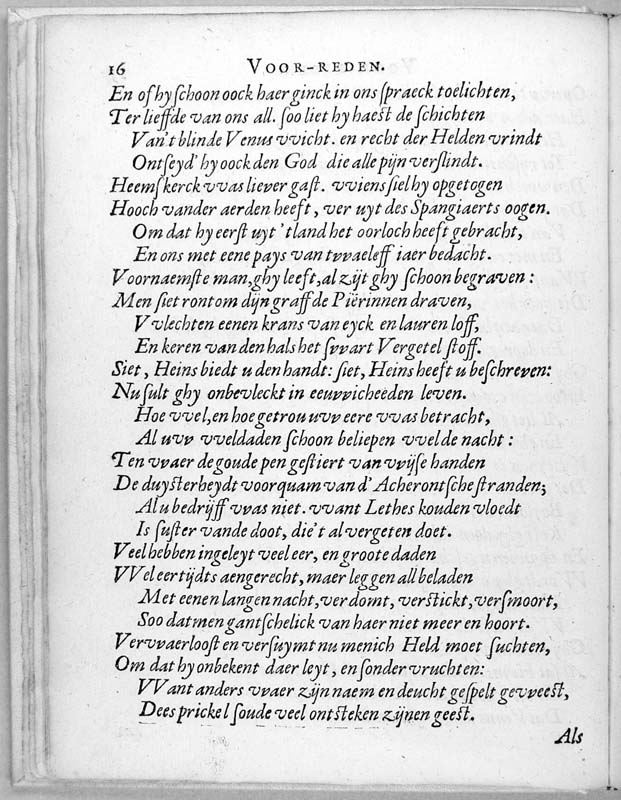 16 VOOR-REDEN.
En of hy ſchoon oock haer ginck in ons ſpraeck toelichten,
Ter lieffde van ons all. ſoo liet hy haeſt de ſchichten
Van't blinde Venus vvicht. en recht der Helden vrindt
Ontſeyd' hy oock den God die alle pijn verſlindt.
Heemſkerck vvas liever gaſt. vviens ſiel hy opgetogen
Hooch vander aerden heeft, ver uyt des Spangiaerts oogen.
Om dat hy eerſt uyt 'tland het oorloch heeft gebracht,
En ons met eene pays van tvvaeleff iaer bedacht.
Voornaemſte man, ghy leeft, al zijt ghy ſchoon begraven:
Men ſiet rontom dijn graff de Piërinnen draven,
Vvlechten eenen krans van eyck en lauren loff,
En keren van den hals het ſvvart Vergetel ſtoff.
Siet, Heins biedt u den handt: ſiet, Heins heeft u beſchreven:
Nu ſult ghy onbevleckt in eeuvvicheeden leven.
Hoe vvel, en hoe getrou uvv eere vvas betracht,
Al uvv vveldaden ſchoon beliepen vvel de nacht:
Ten vvaer de goude pen geſtiert van vvijſe handen
De duyſterheydt voorquam van d' Acherontſche ſtranden;
Al u bedrijff vvas niet. vvant Lethes kouden vloedt
Is ſuſter vande doot, die't al vergeten doet.
Veel hebben ingeleyt veel eer, en groote daden
VVel eertijdts aengerecht, maer leggen all beladen
Met eenen langen nacht, verdomt, verſtickt, verſmoort,
Soo datmen gantſchelick van haer niet meer en hoort.
Vervvaerlooſt en verſuymt nu menich Held moet ſuchten,
Om dat hy onbekent daer leyt, en ſonder vruchten:
VVant anders vvaer zijn naem en deucht geſpelt gevveeſt,
Dees prickel ſoude veel ontſteken zijnen geeſt.
Als